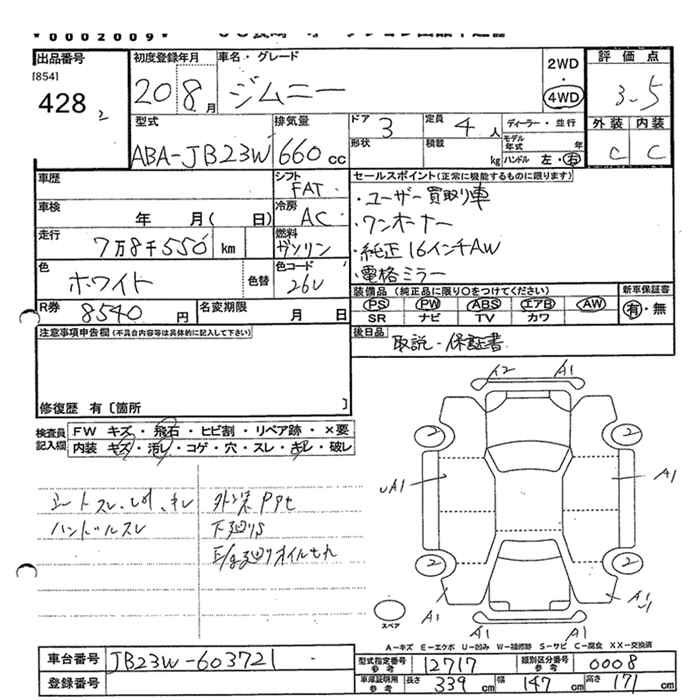 0002009
出品番号
[854]
428 2
初度登録年月
20 8月
車名・グレード
ジムニー
2WD
・
4WD
評価点
3.5
外装 内装
C C
型式
ABA-JB23W
排気量
660 cc
ドア 3
定員 4 人
ディーラー・並行
形状
積載 kg
モデル年式 年
ハンドル 左・右
車歴
シフト
FAT
車検 年 月( 日)
冷房
AC
走行
7万8千550 km
燃料
ガソリン
色
ホワイト
色替
色コード
26U
R券 8540 円
名変期限 月 日
セールスポイント(正常に機能するものに限ります)
・ユーザー買取り車
・ワンオーナー
・純正16インチAW
・電格ミラー
装備品(純正品に限り○をつけてください)
新車保証書
PS PW ABS エアB AW
SR ナビ TV カワ
有・無
後日品
取説・保証書
注意事項申告欄(不具合内容等は具体的に記入して下さい)
修復歴 有〔箇所 〕
検査員記入欄
FW キズ・飛石・ヒビ割・リペア跡・×要
内装 キズ・汚レ・コゲ・穴・スレ・キレ・破レ
シートスレ、シミ、キレ
ハンドルスレ
外装Pﾀﾞｸ
下廻りS
E/g廻りオイルモレ
A2 A1
2 2
A1
A1
2 2
A1
A1
A1
スペア
A-キズ E-エクボ U-凹み W-補修跡 S-サビ C-腐食 XX-交換済
車台番号 JB23W-603721
登録番号
型式指定番号 参考 12717
類別区分番号 参考 0008
車庫証明用 参考 長さ 339 cm 幅 147 cm 高さ 171 cm